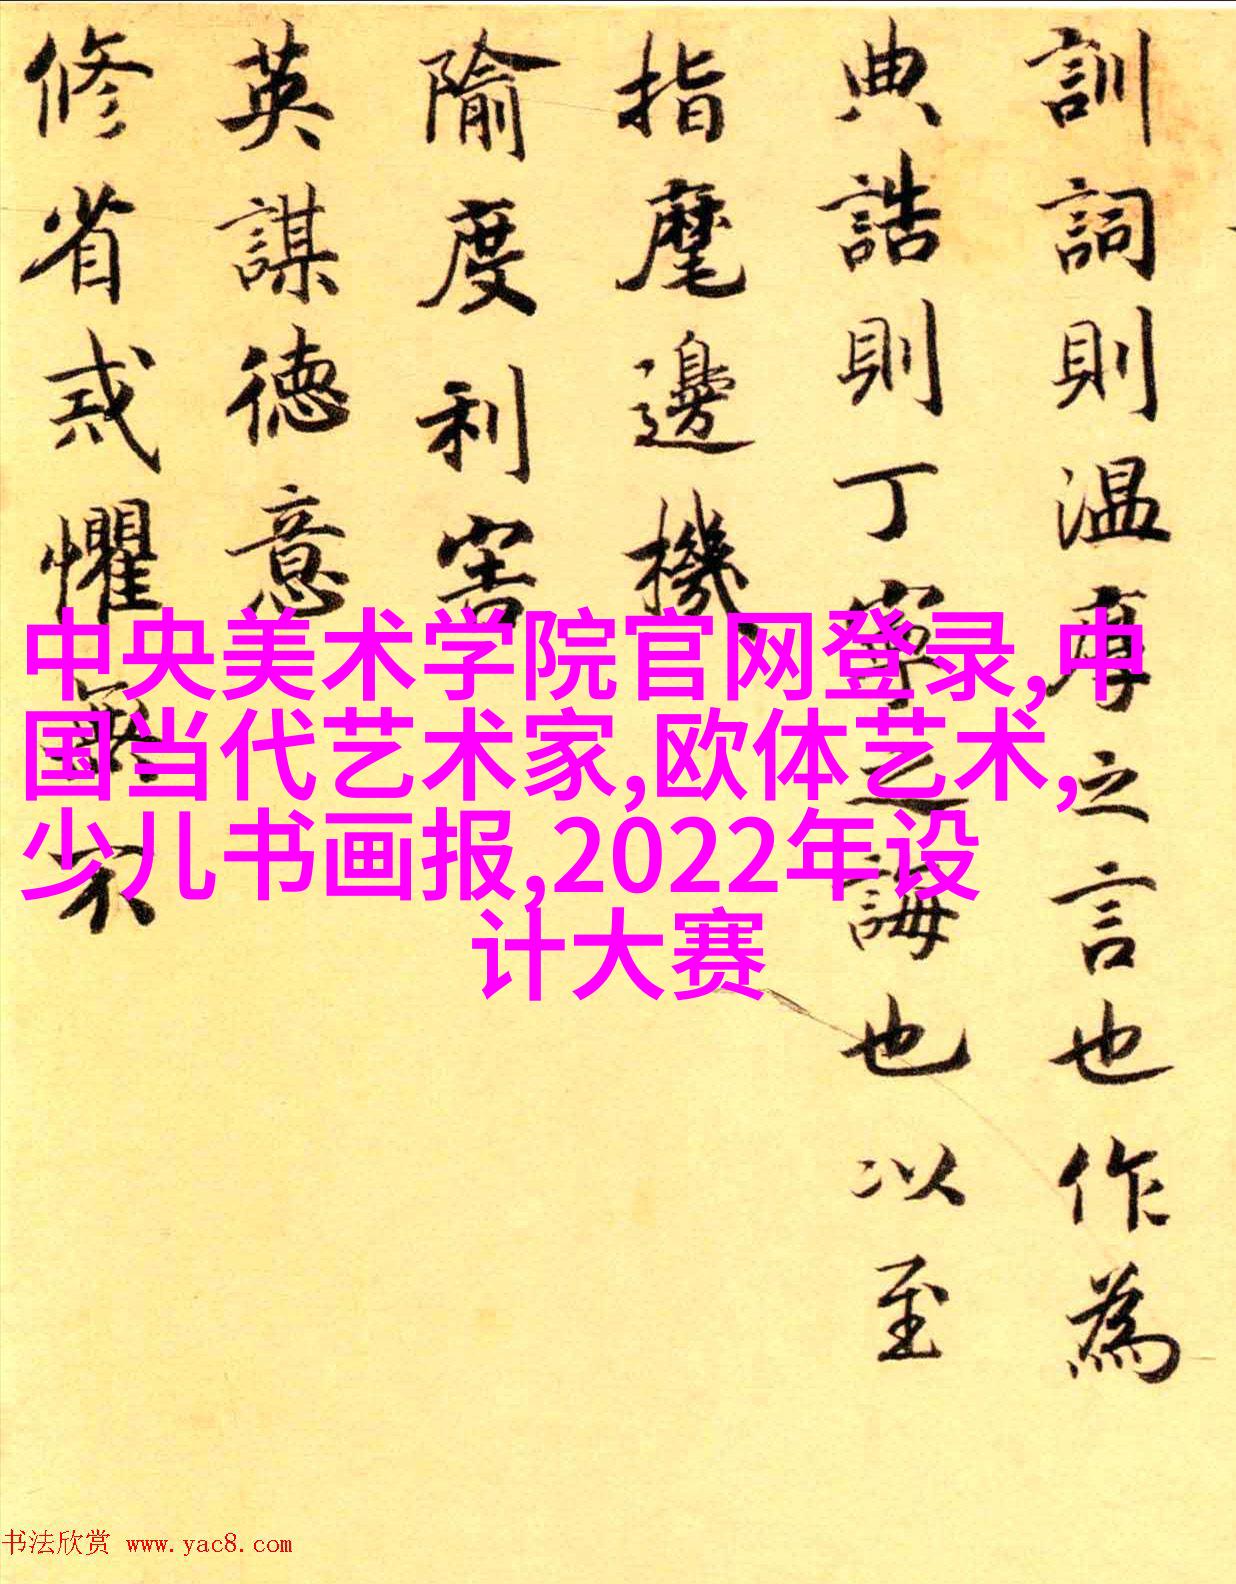 訓詞則温厚之言也作為
典誥則丁寧之誨也以至
指麾邊機
隃度利害
英謀徳意
修省戒懼無不
中央美术学院官网登录,中
国当代艺术家,欧体艺术,
少儿书画报,2022年设
计大赛
书法欣赏 www.yac8.com